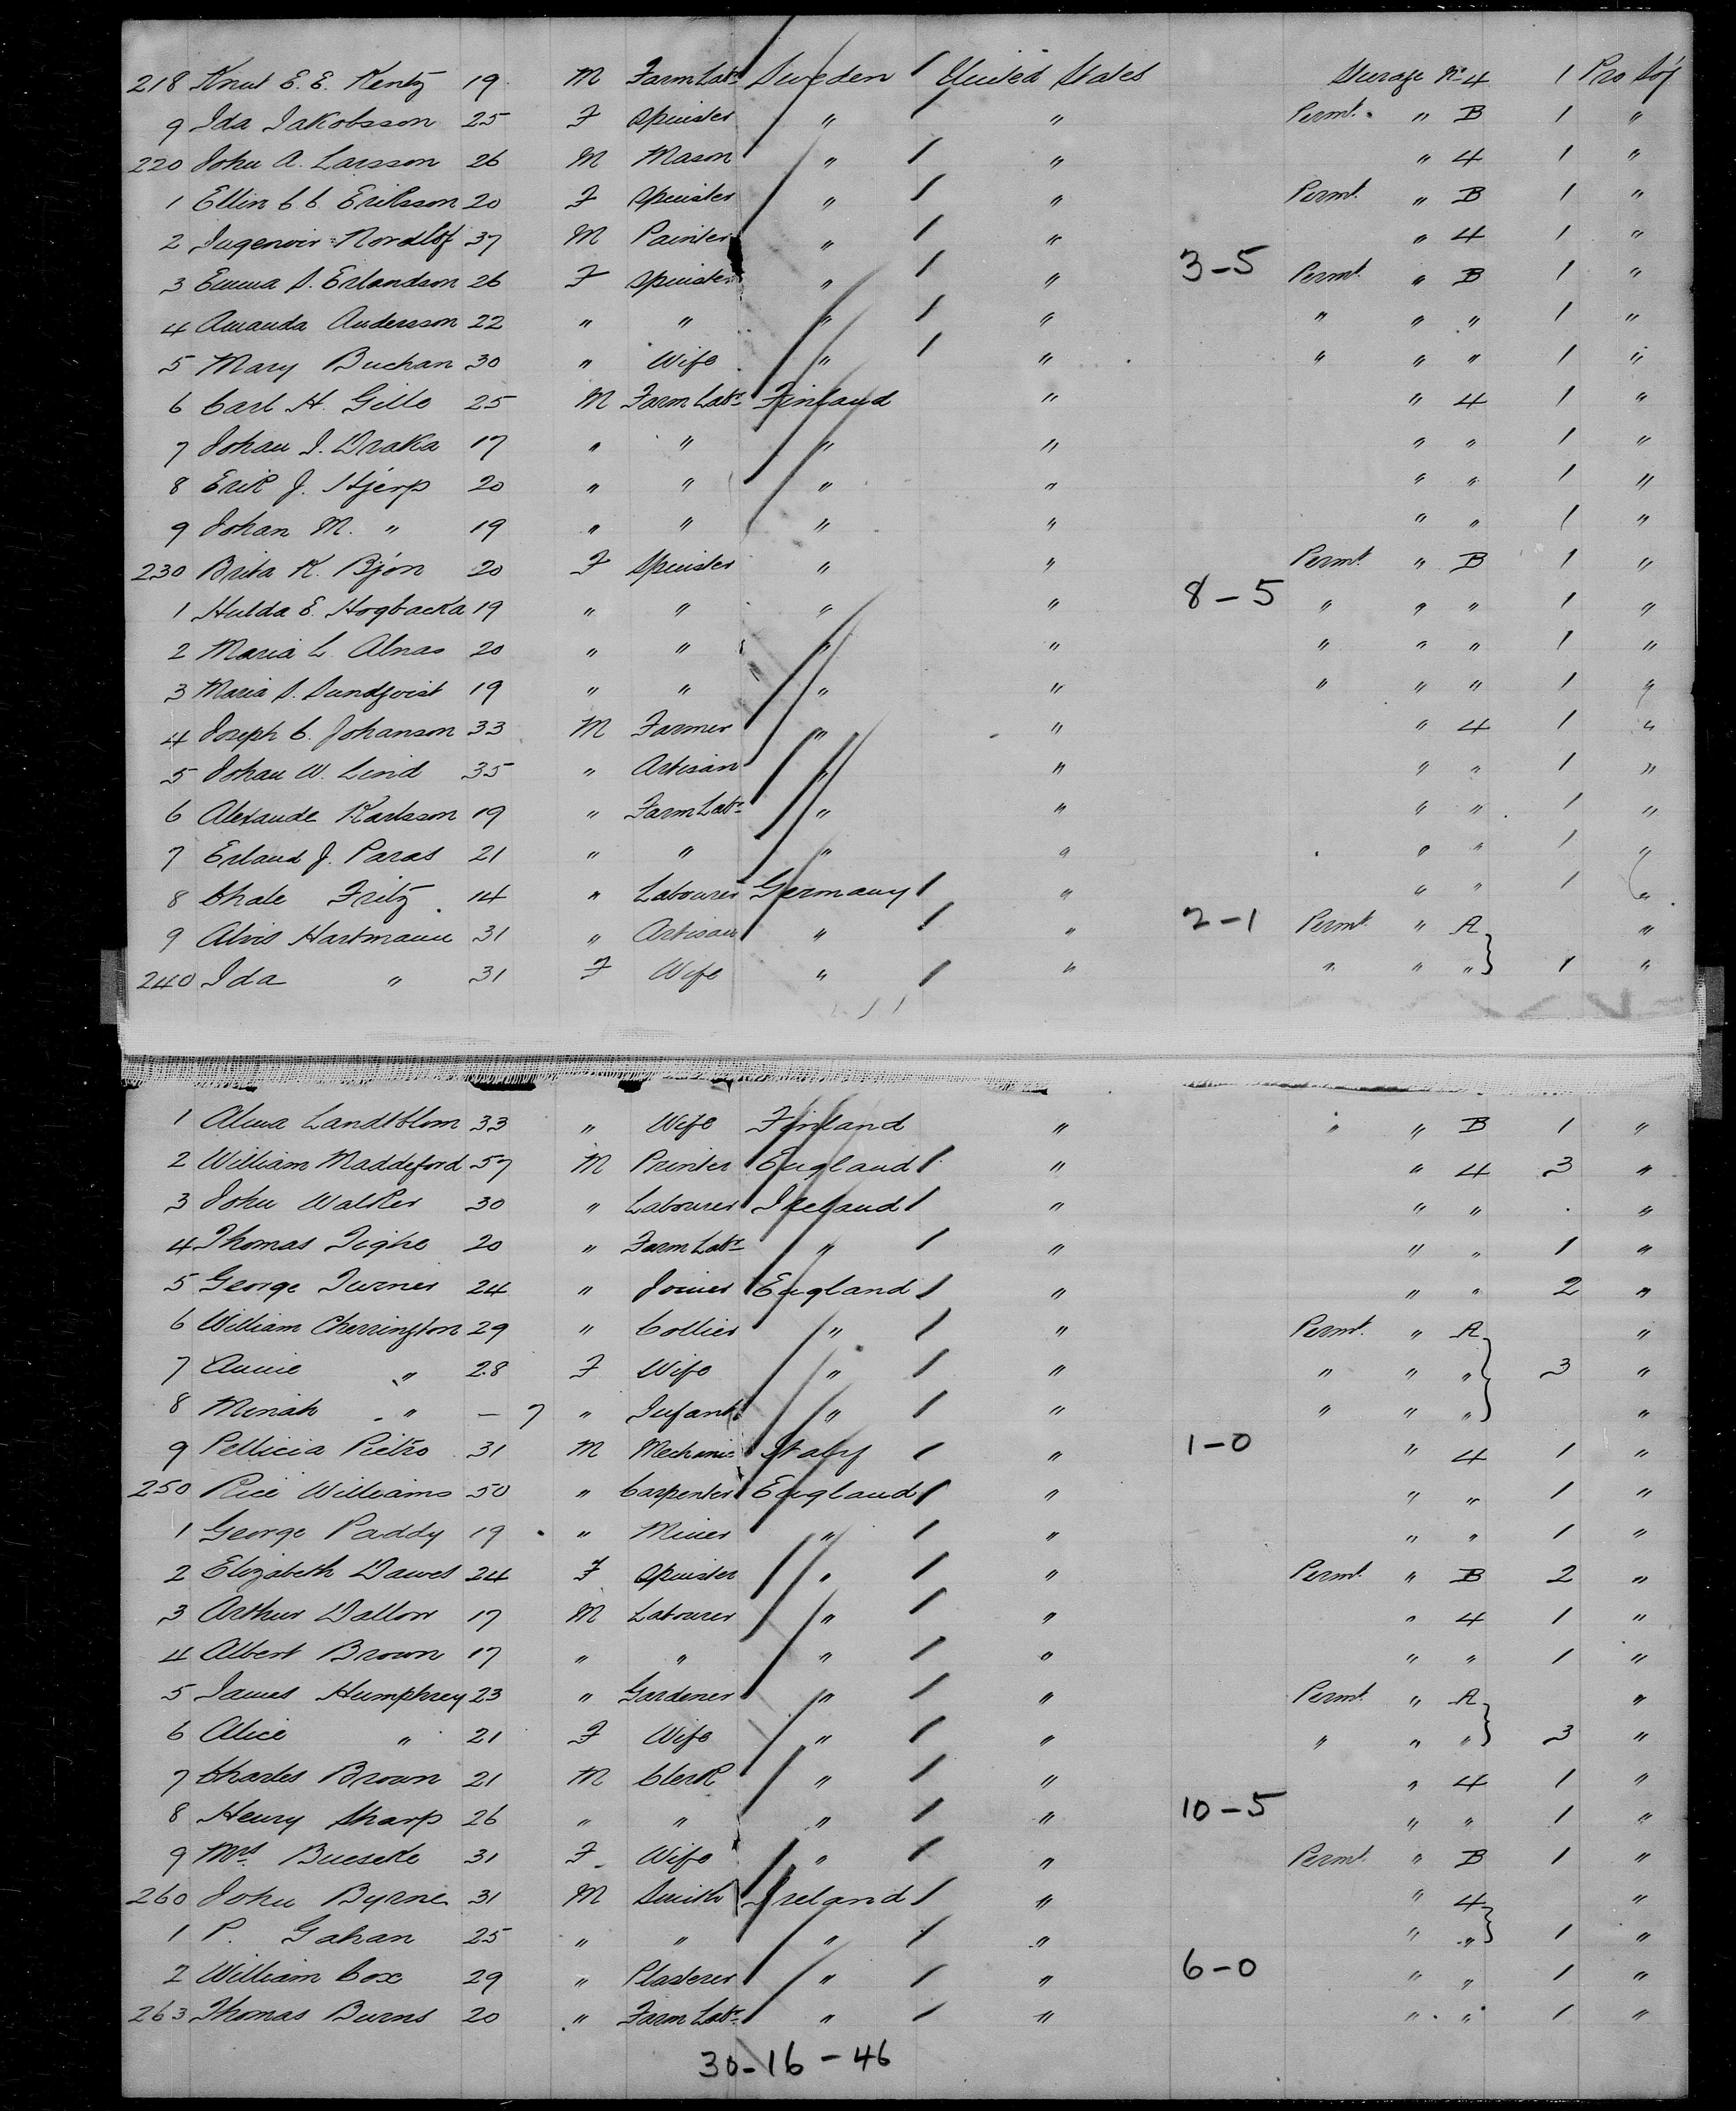 218 Knut E. E. Kentz 19 M Farm Labr Sweden / United States Steerage No 4 1 Pro Soj
9 Ida Jakobsson 25 F Spinster " / " Permt. " B 1 "
220 John A. Larsson 26 M Mason " / " " 4 1 "
1 Ellin C. C. Eriksson 20 F Spinster " / " Permt. " B 1 "
2 Nordlöf 37 M Painter " / " " 4 1 "
3 Emma S. Erlandson 26 F Spinster " / " 3-5 Permt. " B 1 "
4 Amanda Andersson 22 " " " / " " " " 1 "
5 Mary Buchan 30 " Wife " / " " " " 1 "
6 Carl H. Gille 25 M Farm Labr Finland " " 4 1 "
7 Johan J. Draka 17 " " " " " " 1 "
8 Erik J. Hjerp 20 " " " " " " 1 "
9 Johan M. " 19 " " " " " " 1 "
230 Brita K. Bjön 20 F Spinster " " Permt. " B 1 "
1 Hulda E. Hogbacka 19 " " " " 8-5 " " " 1 "
2 Maria L. Alnas 20 " " " " " " " 1 "
3 Maria S. Sundqvist 19 " " " " " " " 1 "
4 Joseph C. Johanson 33 M Farmer " " " 4 1 "
5 Johan W. Lind 35 " Artisan " " " " 1 "
6 Alexande Karlsson 19 " Farm Labr " " " " 1 "
7 Erland J. Paras 21 " " " " " " 1 "
8 Chale Fritz 14 " Labourer Germany / " " " 1 "
9 Alvis Hartmann 31 " Artisan " / " 2-1 Permt. " A "
240 Ida " 31 F Wife " / " " " " 1 "
1 Alma Landtblom 33 " Wife Finland " " " B 1 "
2 William Maddeford 57 M Printer England / " " 4 3 "
3 John Walker 30 " Labourer Ireland / " " " . "
4 Thomas Tighe 20 " Farm Labr " / " " " 1 "
5 George Turner 24 " Joiner England / " " " 2 "
6 William Cherrington 29 " Collier " / " Permt. " A "
7 Annie " 28 F Wife " / " " " " 3 "
8 Minah " – 7 " Infant " / " " " " "
9 Pellicia Pietro 31 M Mechanic Italy / " 1-0 " 4 1 "
250 Rice Williams 50 " Carpenter England / " " " 1 "
1 George Paddy 19 " Miner " / " " " 1 "
2 Elizabeth Dawes 24 F Spinster " / " Permt. " B 2 "
3 Arthur Dallow 17 M Labourer " / " " 4 1 "
4 Albert Brown 17 " " " / " " " 1 "
5 James Humphrey 23 " Gardener " / " Permt. " A "
6 Alice " 21 F Wife " / " " " " 3 "
7 Charles Brown 21 M Clerk " / " " 4 1 "
8 Henry Sharp 26 " " " / " 10-5 " " 1 "
9 Mrs. Bueseke 31 F Wife " / " Permt. " B 1 "
260 John Byrne 31 M Smith Ireland / " " 4 "
1 P. Gahan 25 " " " / " " " 1 "
2 William Cox 29 " Plasterer " / " 6-0 " " 1 "
263 Thomas Burns 20 " Farm Labr " / " " " 1 "
30-16-46